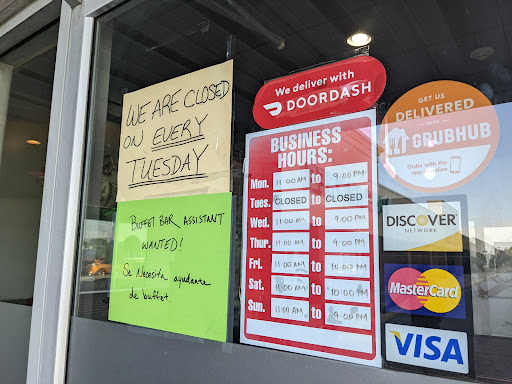 WE ARE CLOSED
ON EVERY
TUESDAY
BUFFET BAR ASSISTANT
WANTED!
Se Necesita ayudante
de buffet.
We deliver with
DOORDASH
BUSINESS
HOURS:
Mon. 11:00 AM to 9:00 PM
Tues. CLOSED to CLOSED
Wed. 11:00 AM to 9:00 PM
Thur. 11:00 AM to 9:00 PM
Fri. 11:00 AM to 10:00 PM
Sat. 11:00 AM to 10:00 PM
Sun. 11:00 AM to 9:00 PM
GET US
DELIVERED
WITH
GRUBHUB
Order with the
app or online
DISCOVER
NETWORK
MasterCard
VISA